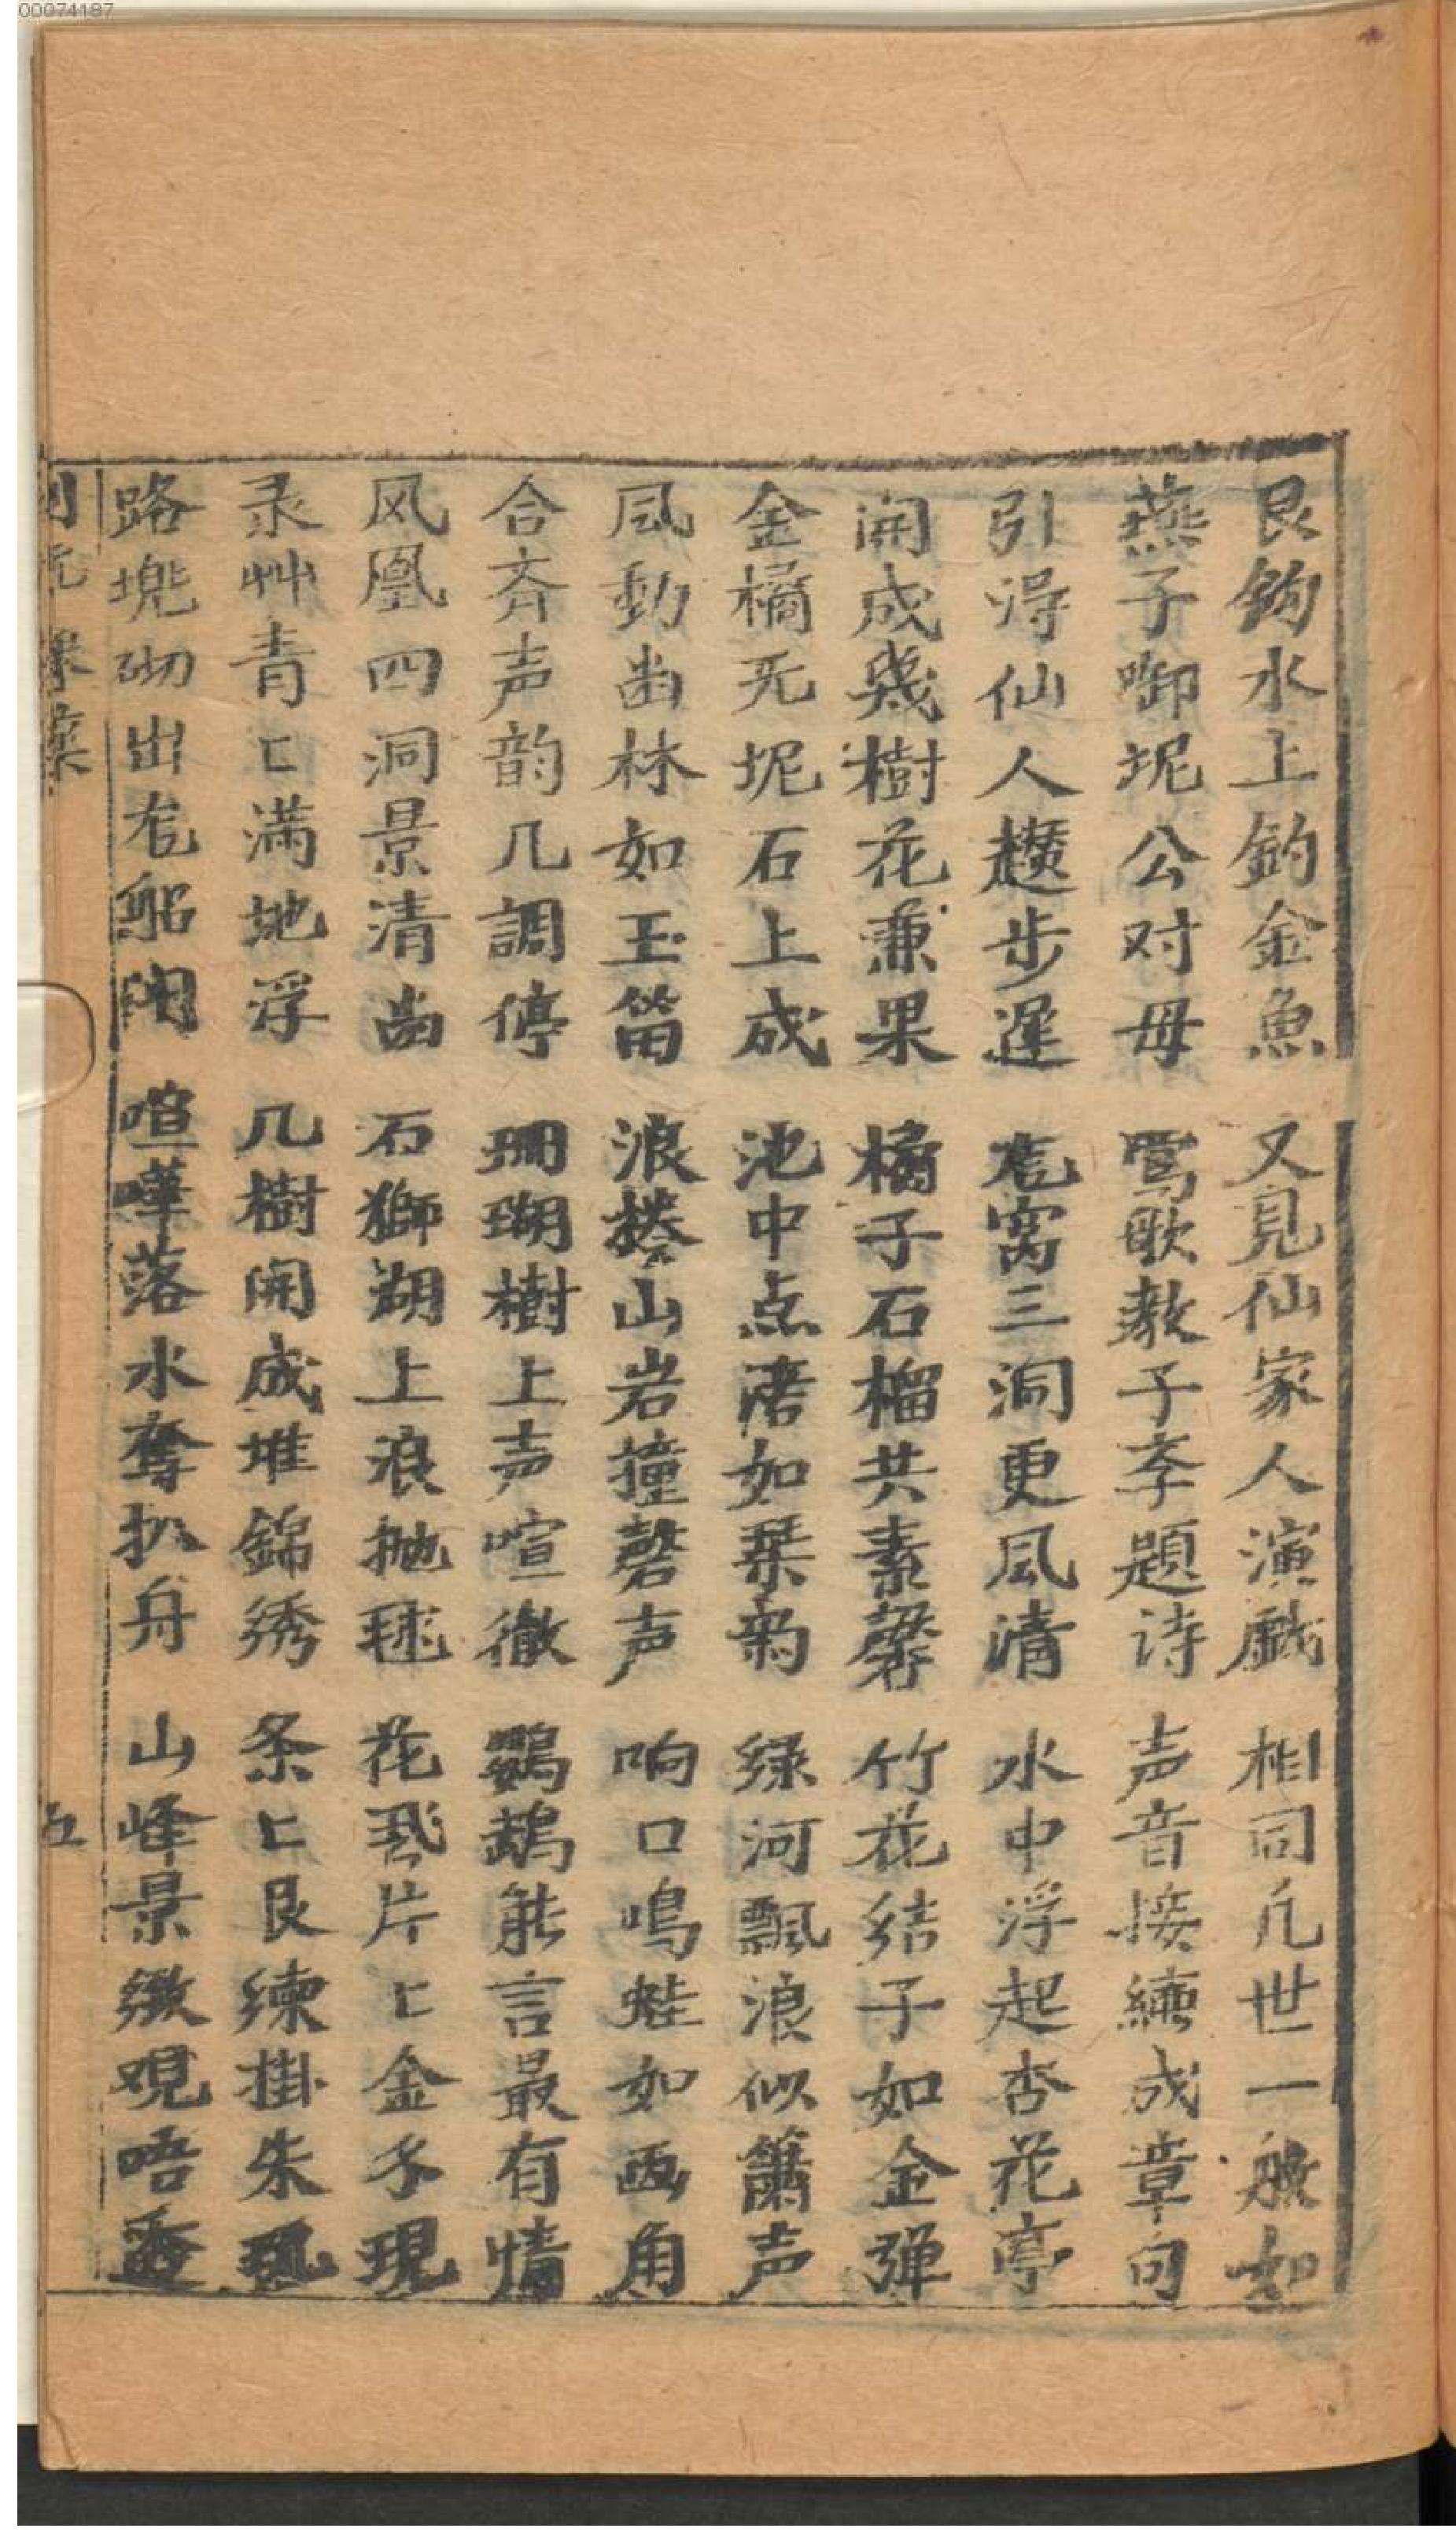 00074187
艮鈎水上釣金魚 又見仙家人演戯 相同凢世一般如
燕子啣坭公对母 鶯歌教子李題诗 声音接續成章句
引得仙人趲步遲 𠃵窝三洞更凬清 水中浮起杏花亭
開成幾樹花兼果 橘子石榴共素馨 竹花結子如金弹
金橘无坭石上成 池中点滴如琹菊 绿河飄浪似簫声
凬動出林如玉笛 浪捲山岩撞磬声 响口鳴蛙如画角
合斉声韵几調停 珊瑚樹上声喧徹 鸚鵡能言最有情
风凰四洞景清出 石獅湖上浪抛毬 花飛片匕金子現
录艸青匕满地浮 几樹開成堆錦绣 条匕艮練掛朱
路 砌出 船闹 喧嘩落水奪扒舟 山峰景緻 唔
五